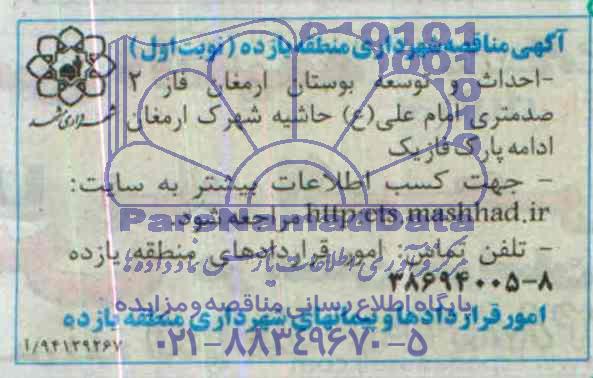 آگهی مناقصه شهرداری منطقه یازده (نوبت اول)
-احداث و توسعه بوستان ارمغان فاز ۲
صدمتری امام علی(ع) حاشیه شهرک ارمغان
ادامه پارک فازیک
شهرداری مشهد
- جهت کسب اطلاعات بیشتر به سایت:
http:ets.mashhad.ir مراجعه شود.
- تلفن تماس: امور قراردادهای منطقه یازده
۳۸۶۹۴۰۰۵-۸
امور قراردادها و پیمانهای شهرداری منطقه یازده
۱/۹۴۱۳۹۲۶۷
ParsNamadData
پایگاه اطلاع رسانی مناقصه و مزایده
۰۲۱-۸۸۳۴۹۶۷۰-۵